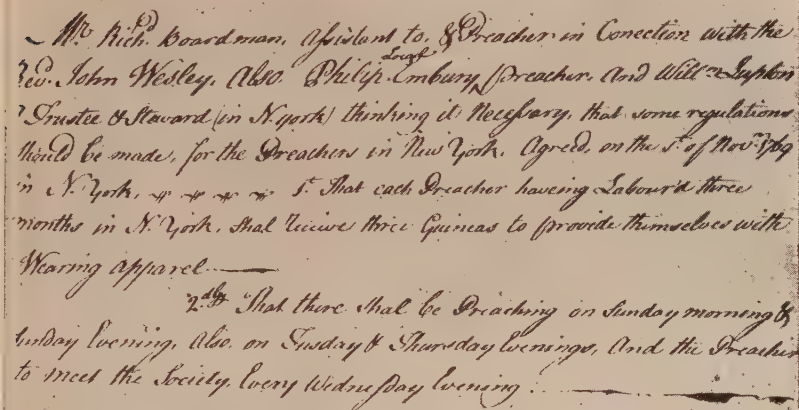 Mr. Richd. Boardman, Assistant to, & Preacher in Conection with the
Rev. John Wesley. Also. Philip Embury, Local preacher. And Willm. Lupton
Trustee & Steward (in N. york) thinking it Necessary, that some regulations
should be made, for the Preachers in New York. Agreed, on the 1st of Novr. 1769
in N. York, 1st. That each Preacher haveing Labour'd three
months in N. York. shal receive three Guineas to provide themselves with
Wearing Apparel
2dly That there shal be Preaching on Sunday morning &
Sunday Evening, Also. on Tusday & Thursday Evenings, And the Preacher
to meet the Society. Every Wednesday Evening